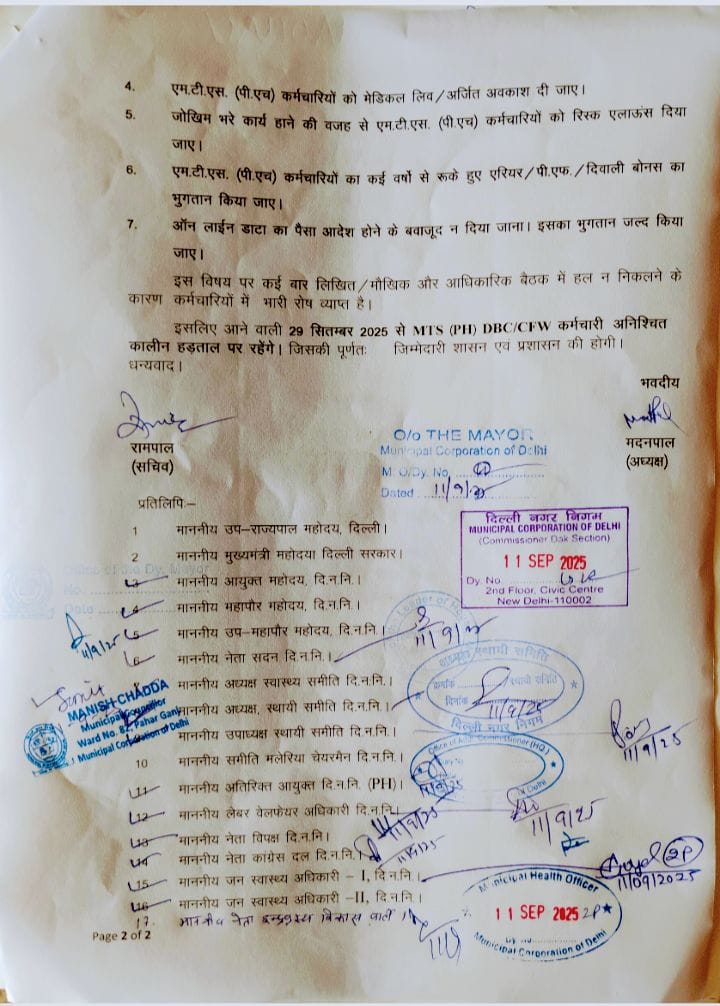 4. एम.टी.एस. (पी.एच) कर्मचारियों को मेडिकल लिव/अर्जित अवकाश दी जाए।
5. जोखिम भरे कार्य हाने की वजह से एम.टी.एस. (पी.एच) कर्मचारियों को रिस्क एलाऊंस दिया
जाए।
6. एम.टी.एस. (पी.एच) कर्मचारियों का कई वर्षो से रूके हुए एरियर/पी.एफ./दिवाली बोनस का
भुगतान किया जाए।
7. ऑन लाईन डाटा का पैसा आदेश होने के बवाजूद न दिया जाना। इसका भुगतान जल्द किया
जाए।
इस विषय पर कई बार लिखित/मौखिक और आधिकारिक बैठक में हल न निकलने के
कारण कर्मचारियों में भारी रोष व्याप्त है।
इसलिए आने वाली 29 सितम्बर 2025 से MTS (PH) DBC/CFW कर्मचारी अनिश्चित
कालीन हड़ताल पर रहेंगे। जिसकी पूर्णतः जिम्मेदारी शासन एवं प्रशासन की होगी।
धन्यवाद।
भवदीय
रामपाल
(सचिव)
मदनपाल
(अध्यक्ष)
O/o THE MAYOR
Municipal Corporation of Delhi
M. O/Dy. No.
Dated 11/9/25
प्रतिलिपिः–
दिल्ली नगर निगम
MUNICIPAL CORPORATION OF DELHI
(Commissioner Dak Section)
11 SEP 2025
Dy. No
2nd Floor, Civic Centre
New Delhi-110002
1 माननीय उप–राज्यपाल महोदय, दिल्ली।
2 माननीय मुख्यमंत्री महोदया दिल्ली सरकार।
Office of the Dy. Mayor
No.
Date
3 माननीय आयुक्त महोदय, दि.न.नि.।
4 माननीय महापौर महोदय, दि.न.नि.।
माननीय उप–महापौर महोदय, दि.न.नि.।
11/9/25
Leader of
11/9/25
माननीय नेता सदन दि.न.नि.।
माननीय अध्यक्ष स्वास्थ्य समिति दि.न.नि.।
माननीय अध्यक्ष, स्थायी समिति, दि.न.नि.।
माननीय उपाध्यक्ष स्थायी समिति दि.न.नि.।
स्थायी समिति
क्रमांक
दिनांक 11/9/25
दिल्ली नगर निगम
MANISH CHADDA
Municipal Councillor
Ward No. 82, Pahar Ganj
Municipal Corporation of Delhi
11/9/25
10 माननीय समिति मलेरिया चेयरमैन दि.न.नि.।
11 माननीय अतिरिक्त आयुक्त दि.न.नि. (PH)।
12 माननीय लेबर वेलफेयर अधिकारी दि.न.नि.।
13 माननीय नेता विपक्ष दि.न.नि।
14 माननीय नेता कांग्रेस दल दि.न.नि.।
15 माननीय जन स्वास्थ्य अधिकारी – I, दि.न.नि.।
16 माननीय जन स्वास्थ्य अधिकारी –II, दि.न.नि.।
17. माननीय नेता इन्द्रप्रस्थ विकास पार्टी।
11/9/25
11/9/25
11/9/25
11/09/2025
Municipal Health Officer
11 SEP 2025
Dy. No
Municipal Corporation of Delhi
Page 2 of 2